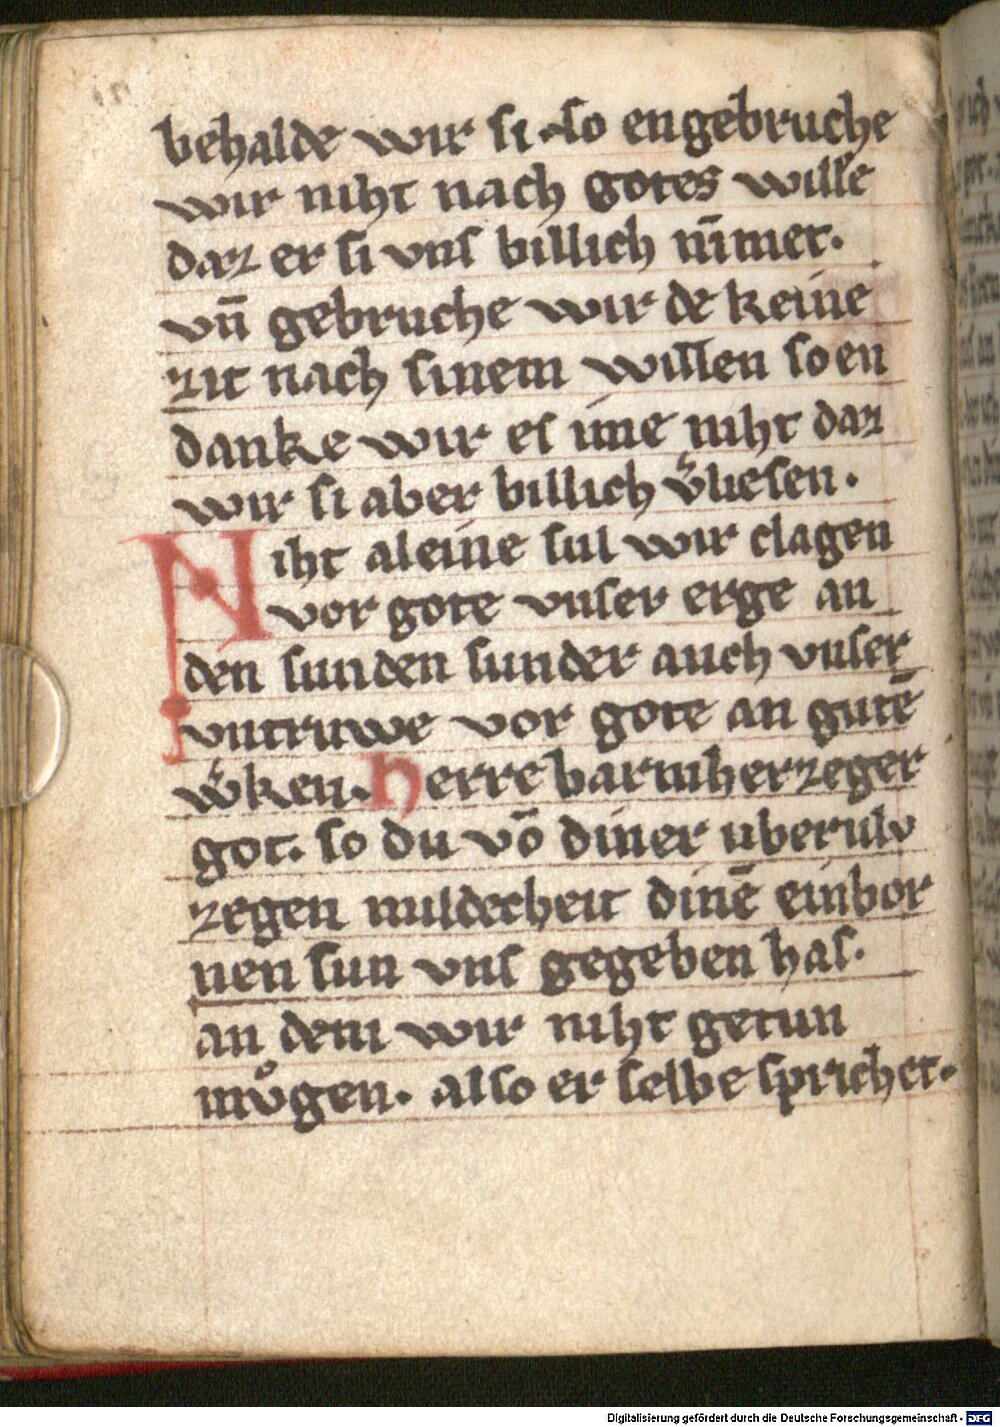 behalde wir si. so engebruche
wir niht nach gotes wille
daz er si vns billich nīmet.
vn̄ gebruche wir de keine
zit nach sinem willen so en
danke wir es ime niht daz
wir si aber billich v̾liesen.
Niht aleine sul wir clagen
vor gote vnser erge an
den sunden sunder auch vnser
vntruwe vor gote an gutē
w̾ken. Herre barmherzeger
got. so du vō diner uberulv
zegen mildecheit dinē einbor
nen sun vns gegeben has.
an dem wir niht getun
mvͦgen. also er selbe sprichet.
Digitalisierung gefördert durch die Deutsche Forschungsgemeinschaft - DFG